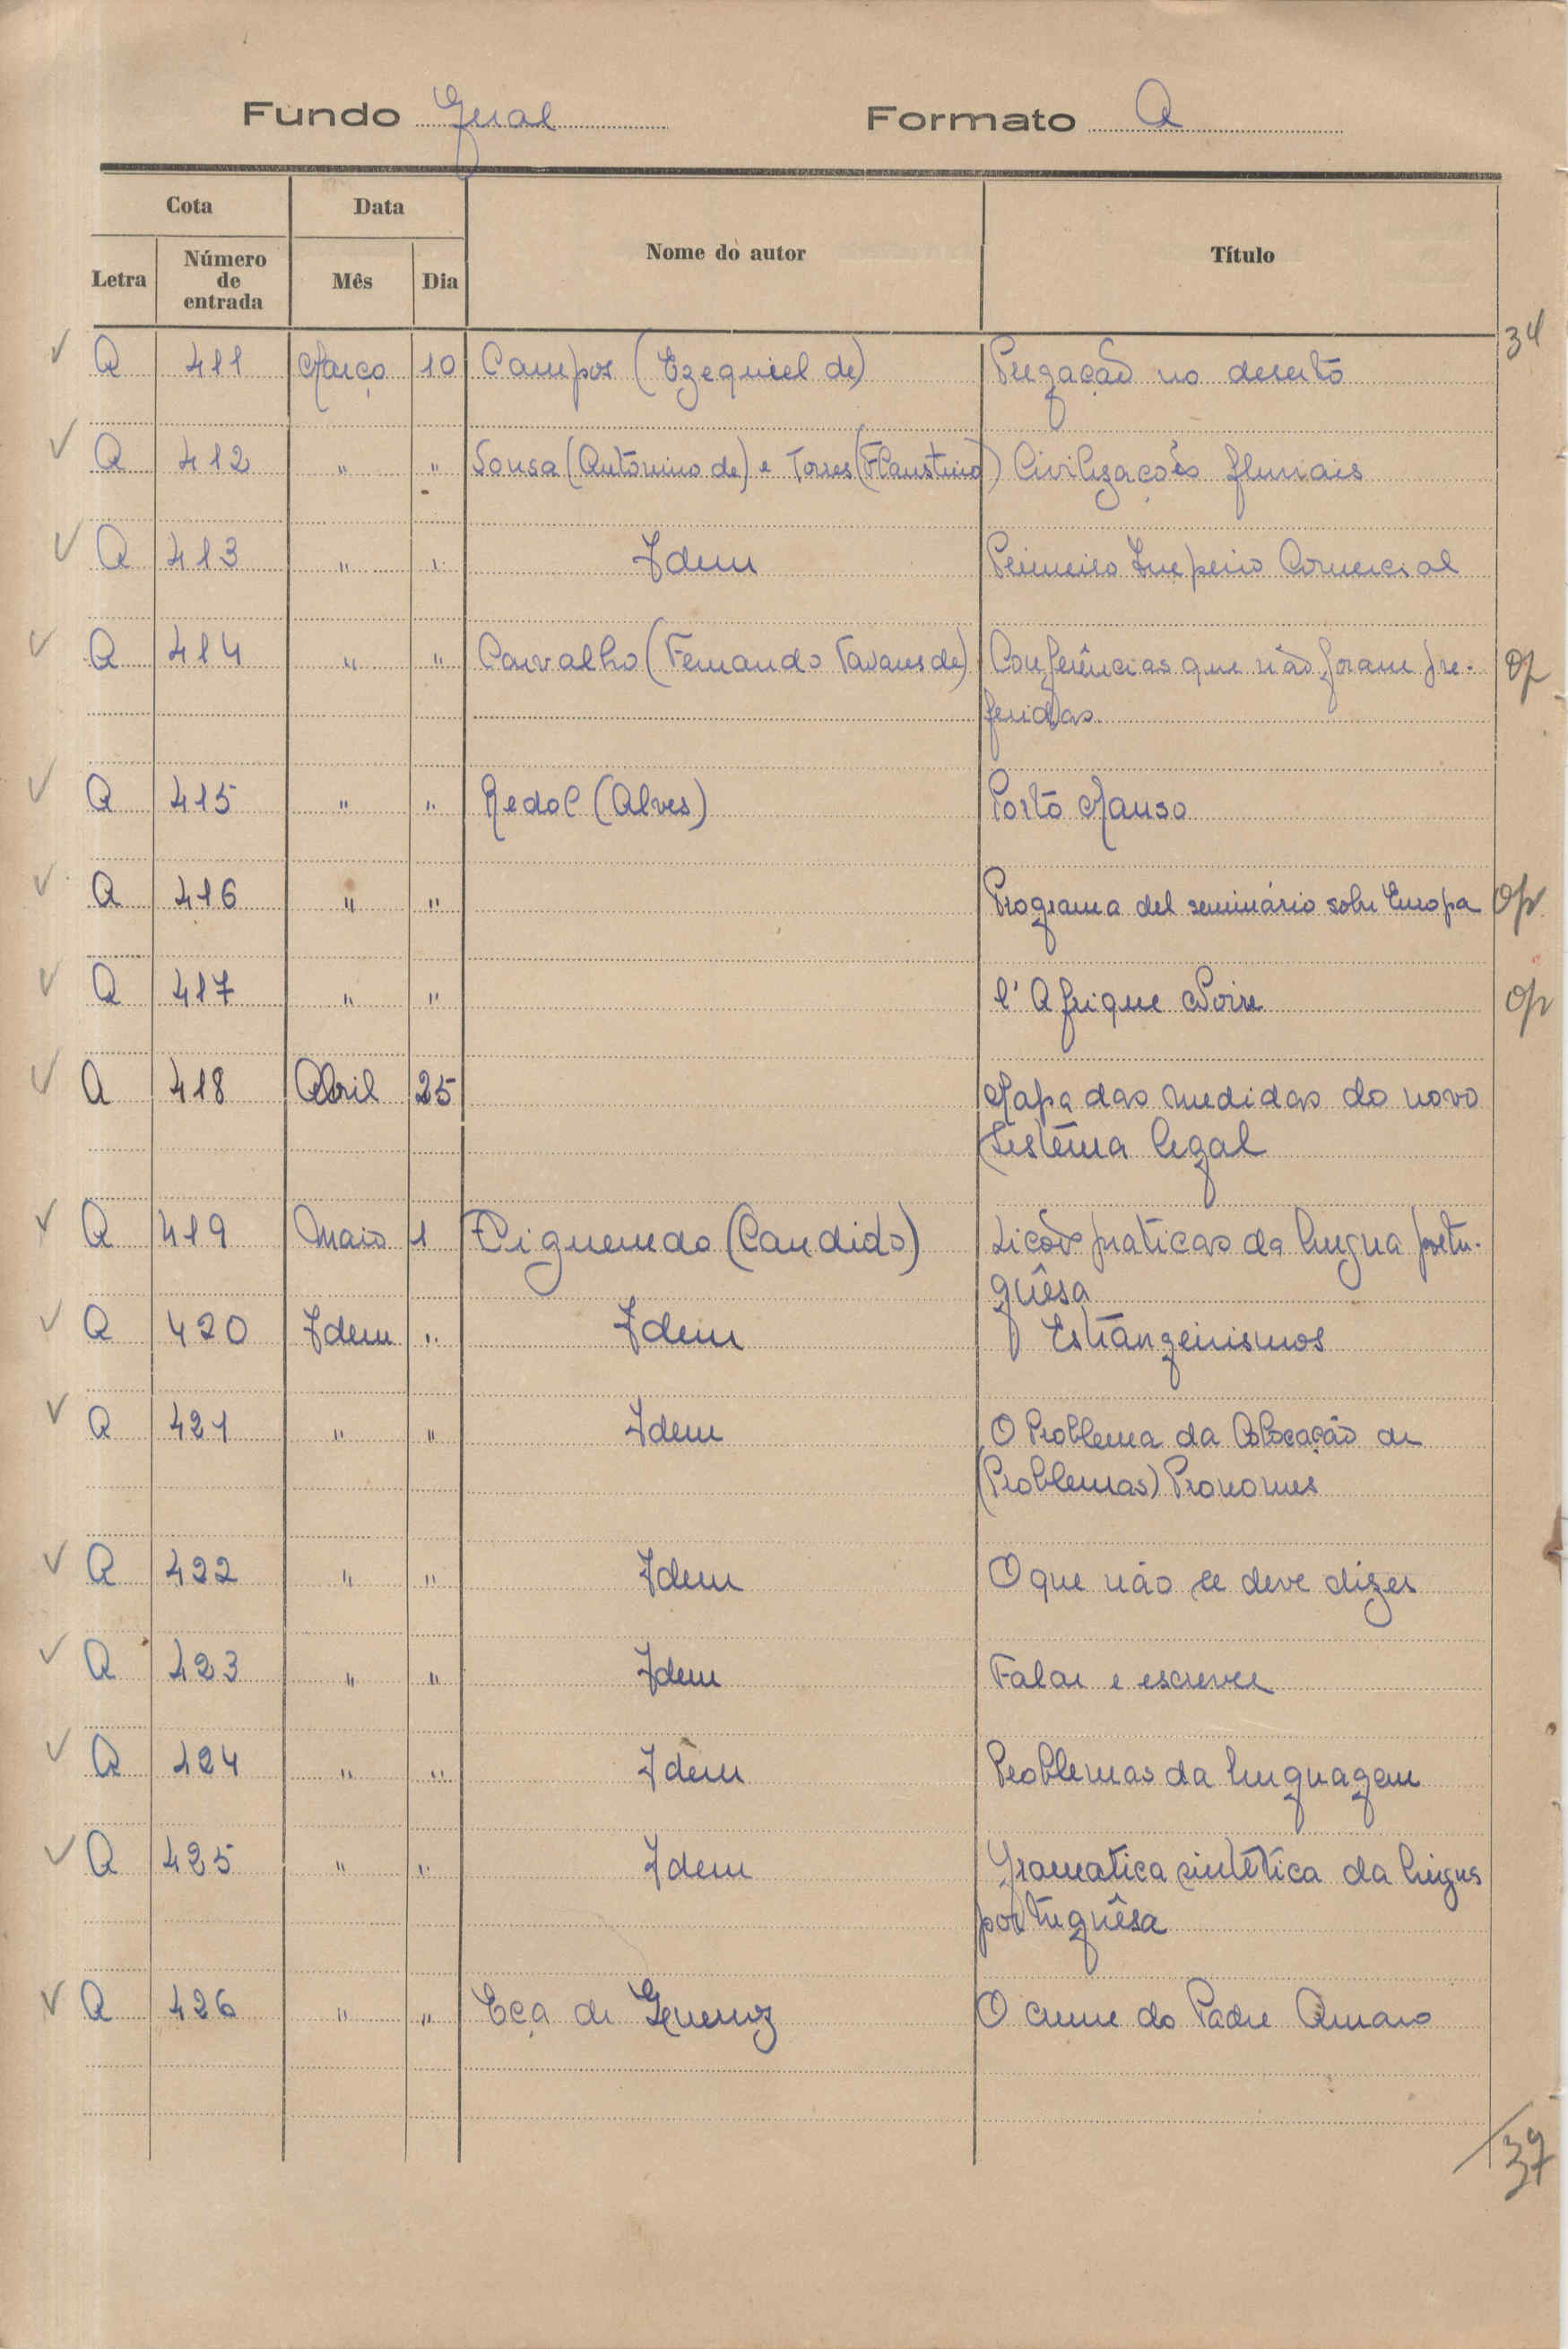 Fundo Geral Formato A
Cota Data Nome do autor Título
Letra Número de entrada Mês Dia
34
A 411 Março 10 Campos (Ezequiel de) Pregação no deserto
A 412 " " Sousa (Antonino de) e Torres (Flaustino) Civilizações fluviais
A 413 " " Idem Primeiro Imperio Comercial
A 414 " " Carvalho (Fernando Tavares de) Conferências que não foram pre- op
feridas
A 415 " " Redol (Alves) Porto Manso
A 416 " " Programa del seminário sobre Europa op
A 417 " " l'Afrique Noire op
A 418 Abril 25 Mapa das medidas do novo
Sistêma legal
A 419 Maio 1 Figueiredo (Candido) Lições praticas da lingua portu-
guêsa
A 420 Idem " Idem Estrangeirismos
A 421 " " Idem O Problema da Colocação de
(Problemas) Pronomes
A 422 " " Idem O que não se deve dizer
A 423 " " Idem Falar e escrever
A 424 " " Idem Problemas da linguagem
A 425 " " Idem Gramatica sintética da lingua
portuguêsa
A 426 " " Eça de Queiroz O crime do Padre Amaro
37